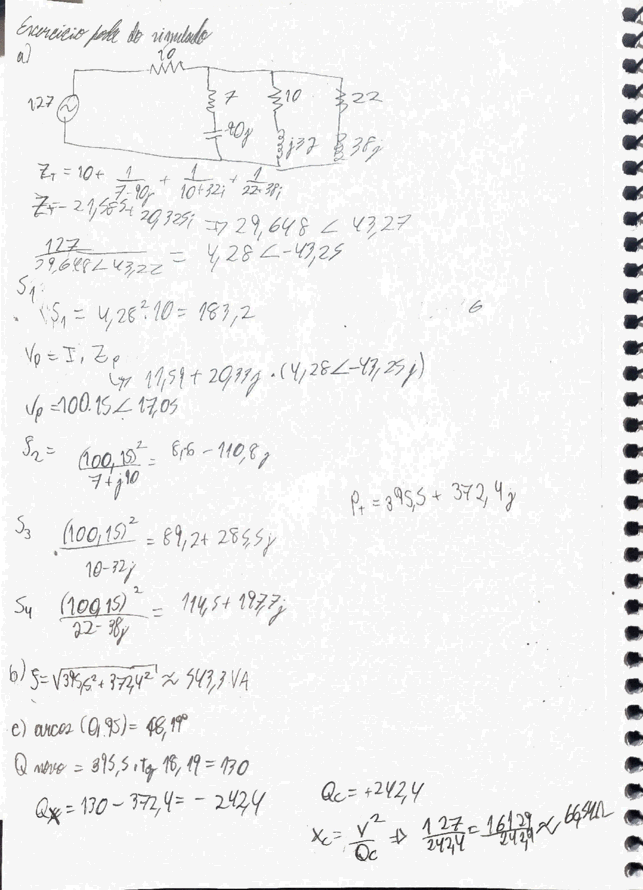 Exercicio pole do simulado
a)
10
127
7
10
22
-90j
j32
38j
Z_T = 10 + 1/(7-90j) + 1/(10+32i) + 1/(22+38i)
Z_T = 21,585 + 20,325i => 29,648 < 43,27
127/(29,648 < 43,22) = 4,28 < -43,25
S1:
S1 = 4,28² · 10 = 183,2
6
Vp = I · Zp
↳ 11,59 + 20,33j · (4,28 < -43,25j)
Vp = 100.15 < 17,05
S2 = (100,15)²/(7+j90) = 8,6 - 110,8j
P_T = 395,5 + 372,4j
S3 (100,15)²/(10-32j) = 89,2 + 285,5j
S4 (100,15)²/(22-38j) = 114,5 + 197,7j
b) S = √(395,5² + 372,4²) ≈ 543,3 VA
c) arccos (0,95) = 18,19°
Q novo = 395,5 · tg 18,19 = 130
Q = 130 - 372,4 = - 242,4
Qc = +242,4
Xc = V²/Qc => 127/242,4 = 16129/242,4 ≈ 66,54Ω